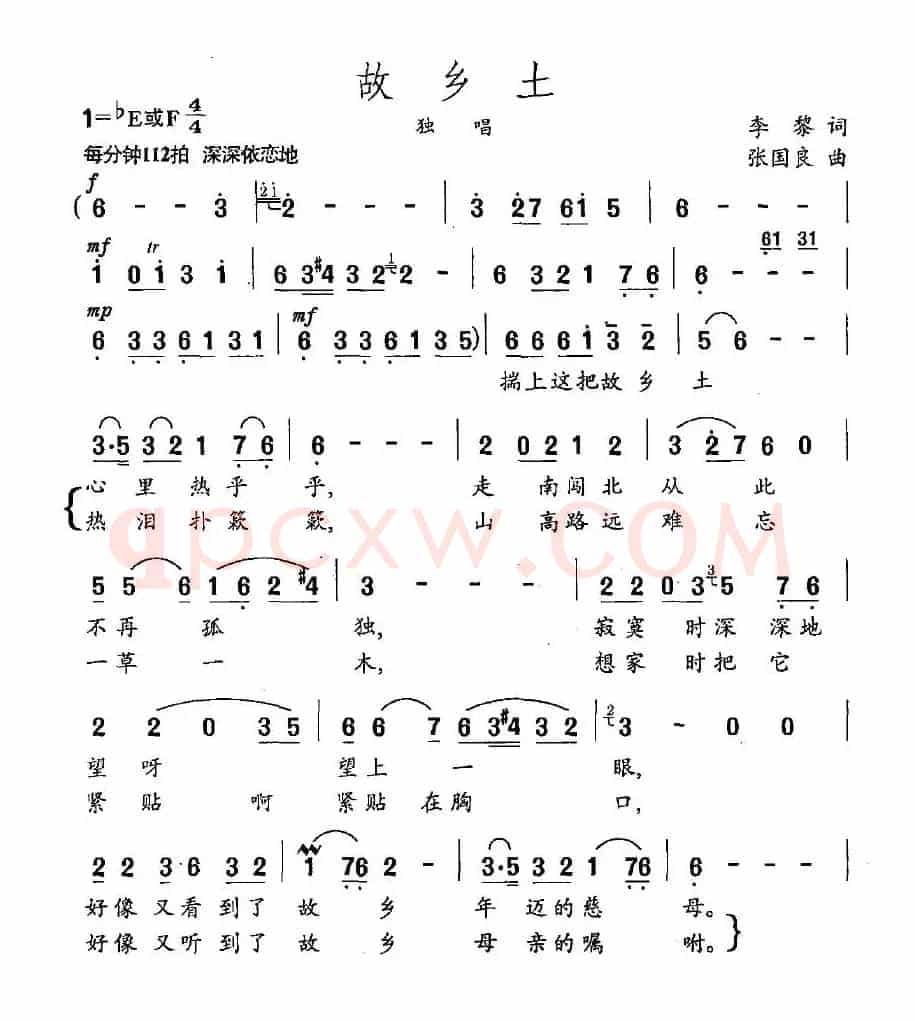 故乡土
1=♭E或F 4/4
独唱
李黎 词
每分钟112拍 深深依恋地
张国良 曲
f
(6 - - 3 | 2 - - - | 3 27 61 5 | 6 - - - |
mf tr 61 31
1 01 3 1 | 63#4 32 2 - | 6 321 76 | 6 - - - |
mp mf
6 33 61 31 | 6 33 61 35) | 66 61 3 2 | 56 - - |
揣上这把故乡土
3·5 32 1 76 | 6 - - - | 2 021 2 | 3 27 6 0 |
心里热乎乎, 走南闯北从此
热泪扑簌簌, 山高路远难忘
qpcxw.COM
55 6 16 2#4 | 3 - - - | 22 03 5 76 |
不再孤独, 寂寞时深深地
一草一木, 想家时把它
2 2 0 35 | 66 7 63#4 32 | 3 - 0 0 |
望呀 望上一眼,
紧贴啊 紧贴在胸口,
22 3·6 32 | 1 76 2 - | 3·5 32 1 76 | 6 - - - |
好像又看到了故乡年迈的慈母。
好像又听到了故乡母亲的嘱咐。